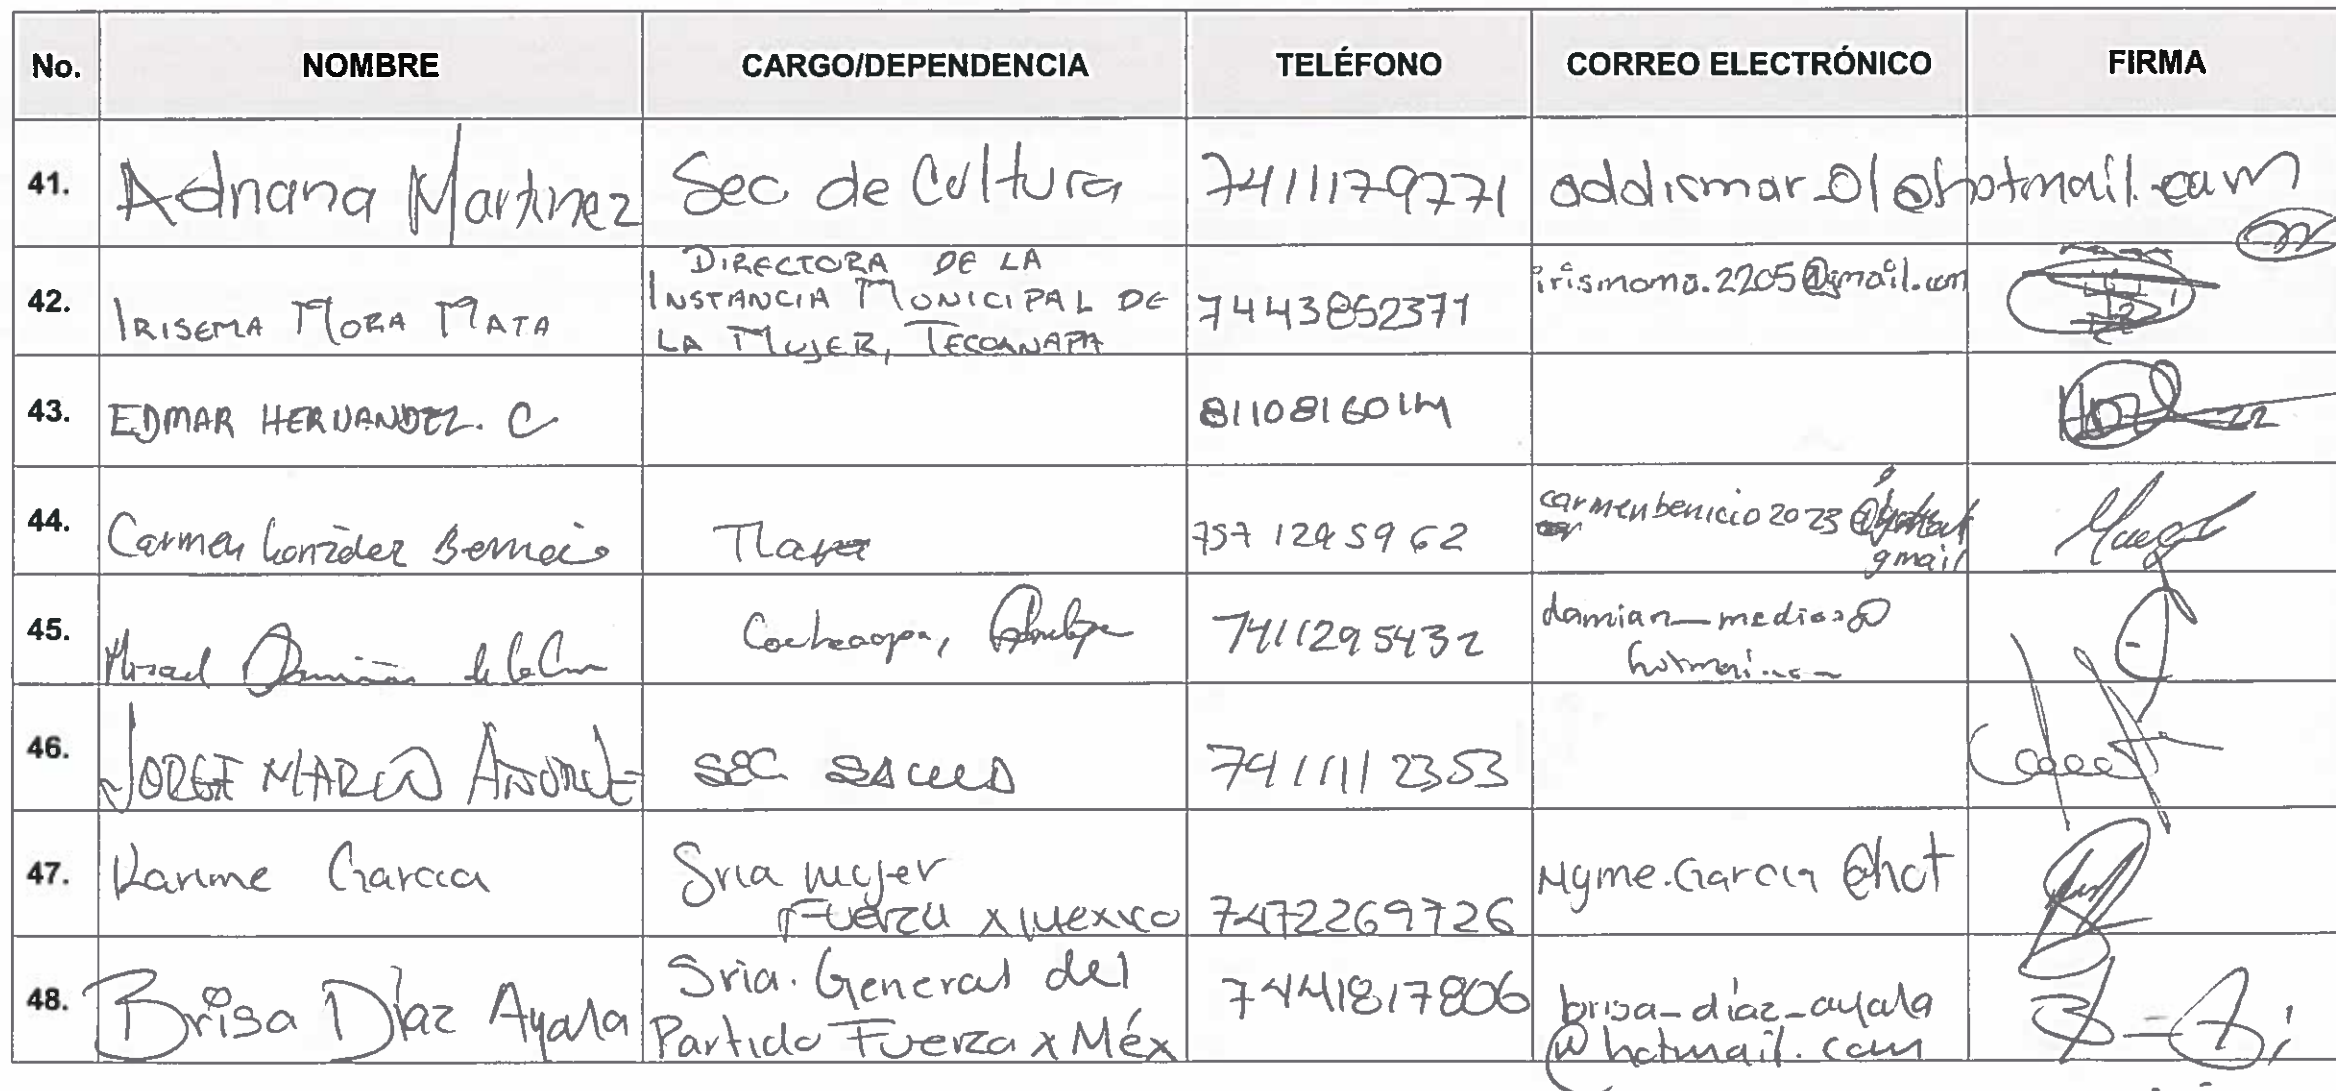 No. NOMBRE CARGO/DEPENDENCIA TELÉFONO CORREO ELECTRÓNICO FIRMA
41. Adriana Martinez Sec de Cultura 7411179771 addismar_01@hotmail.com
DIRECTORA DE LA
INSTANCIA MUNICIPAL DE
LA MUJER, TECOANAPA
42. IRISEMA MORA MATA 7443852371 irismoma.2205@gmail.com
43. EDMAR HERNANDEZ. C 8110816014
44. Carmen González Benicio 757 1295962 carmenbenicio2023@
gmail
45. Misael Damián de la Cruz 7411295432 damian_medios@
46. JORGE MARIO SEC SALUD 7411112353
47. Karime Garcia Sria mujer
Fuerza x Mexico 7472269726 Myme.Garcia @hot
48. Brisa Díaz Ayala Sria. General del
Partido Fuerza x Méx 7441817806 brisa_díaz_ayala
@hotmail.com